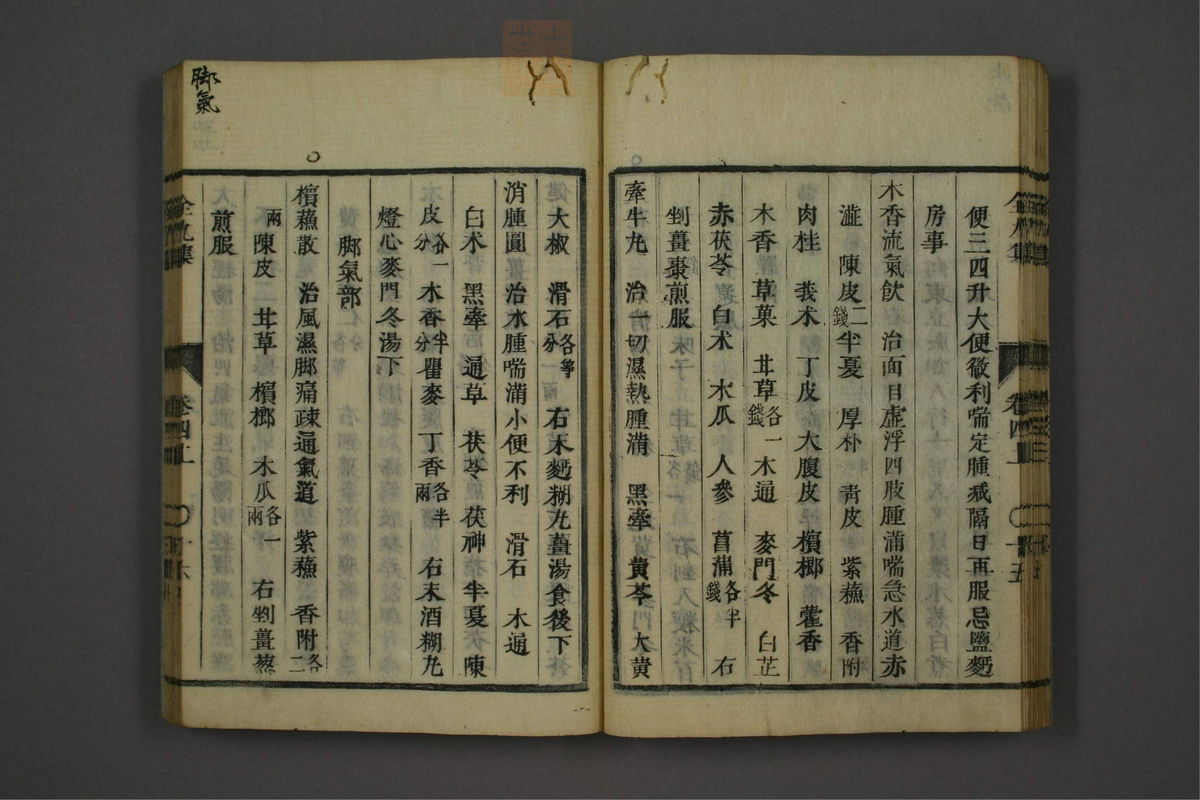 便三四升大便微利喘定腫減隔日再服忌鹽麪
房事
木香流氣飲　治面目虛浮四肢腫滿喘急水道赤
澁　陳皮二錢　半夏　厚朴　靑皮　紫蘓　香附
肉桂　莪朮　丁皮　大腹皮　檳榔　藿香
木香　草菓　甘草各一錢　木通　麥門冬　白芷
赤茯苓　白朮　木瓜　人參　菖蒲各半錢　右
剉薑棗煎服
牽牛丸　治一切濕熱腫滿　黑牽　黄芩　大黄
大椒　滑石各等分　右末麪糊丸薑湯食後下
消腫圓　治水腫喘滿小便不利　滑石　木通
白朮　黑牽　通草　茯苓　茯神　半夏　陳
皮各一分　木香半分　瞿麥　丁香各半兩　右末酒糊丸
燈心麥門冬湯下
脚氣部
檳蘓散　治風濕脚痛疎通氣道　紫蘓　香附各二
兩　陳皮　甘草　檳榔　木瓜各一兩　右剉薑葱
煎服
卷四上
十五
卷四上
十六
脚氣